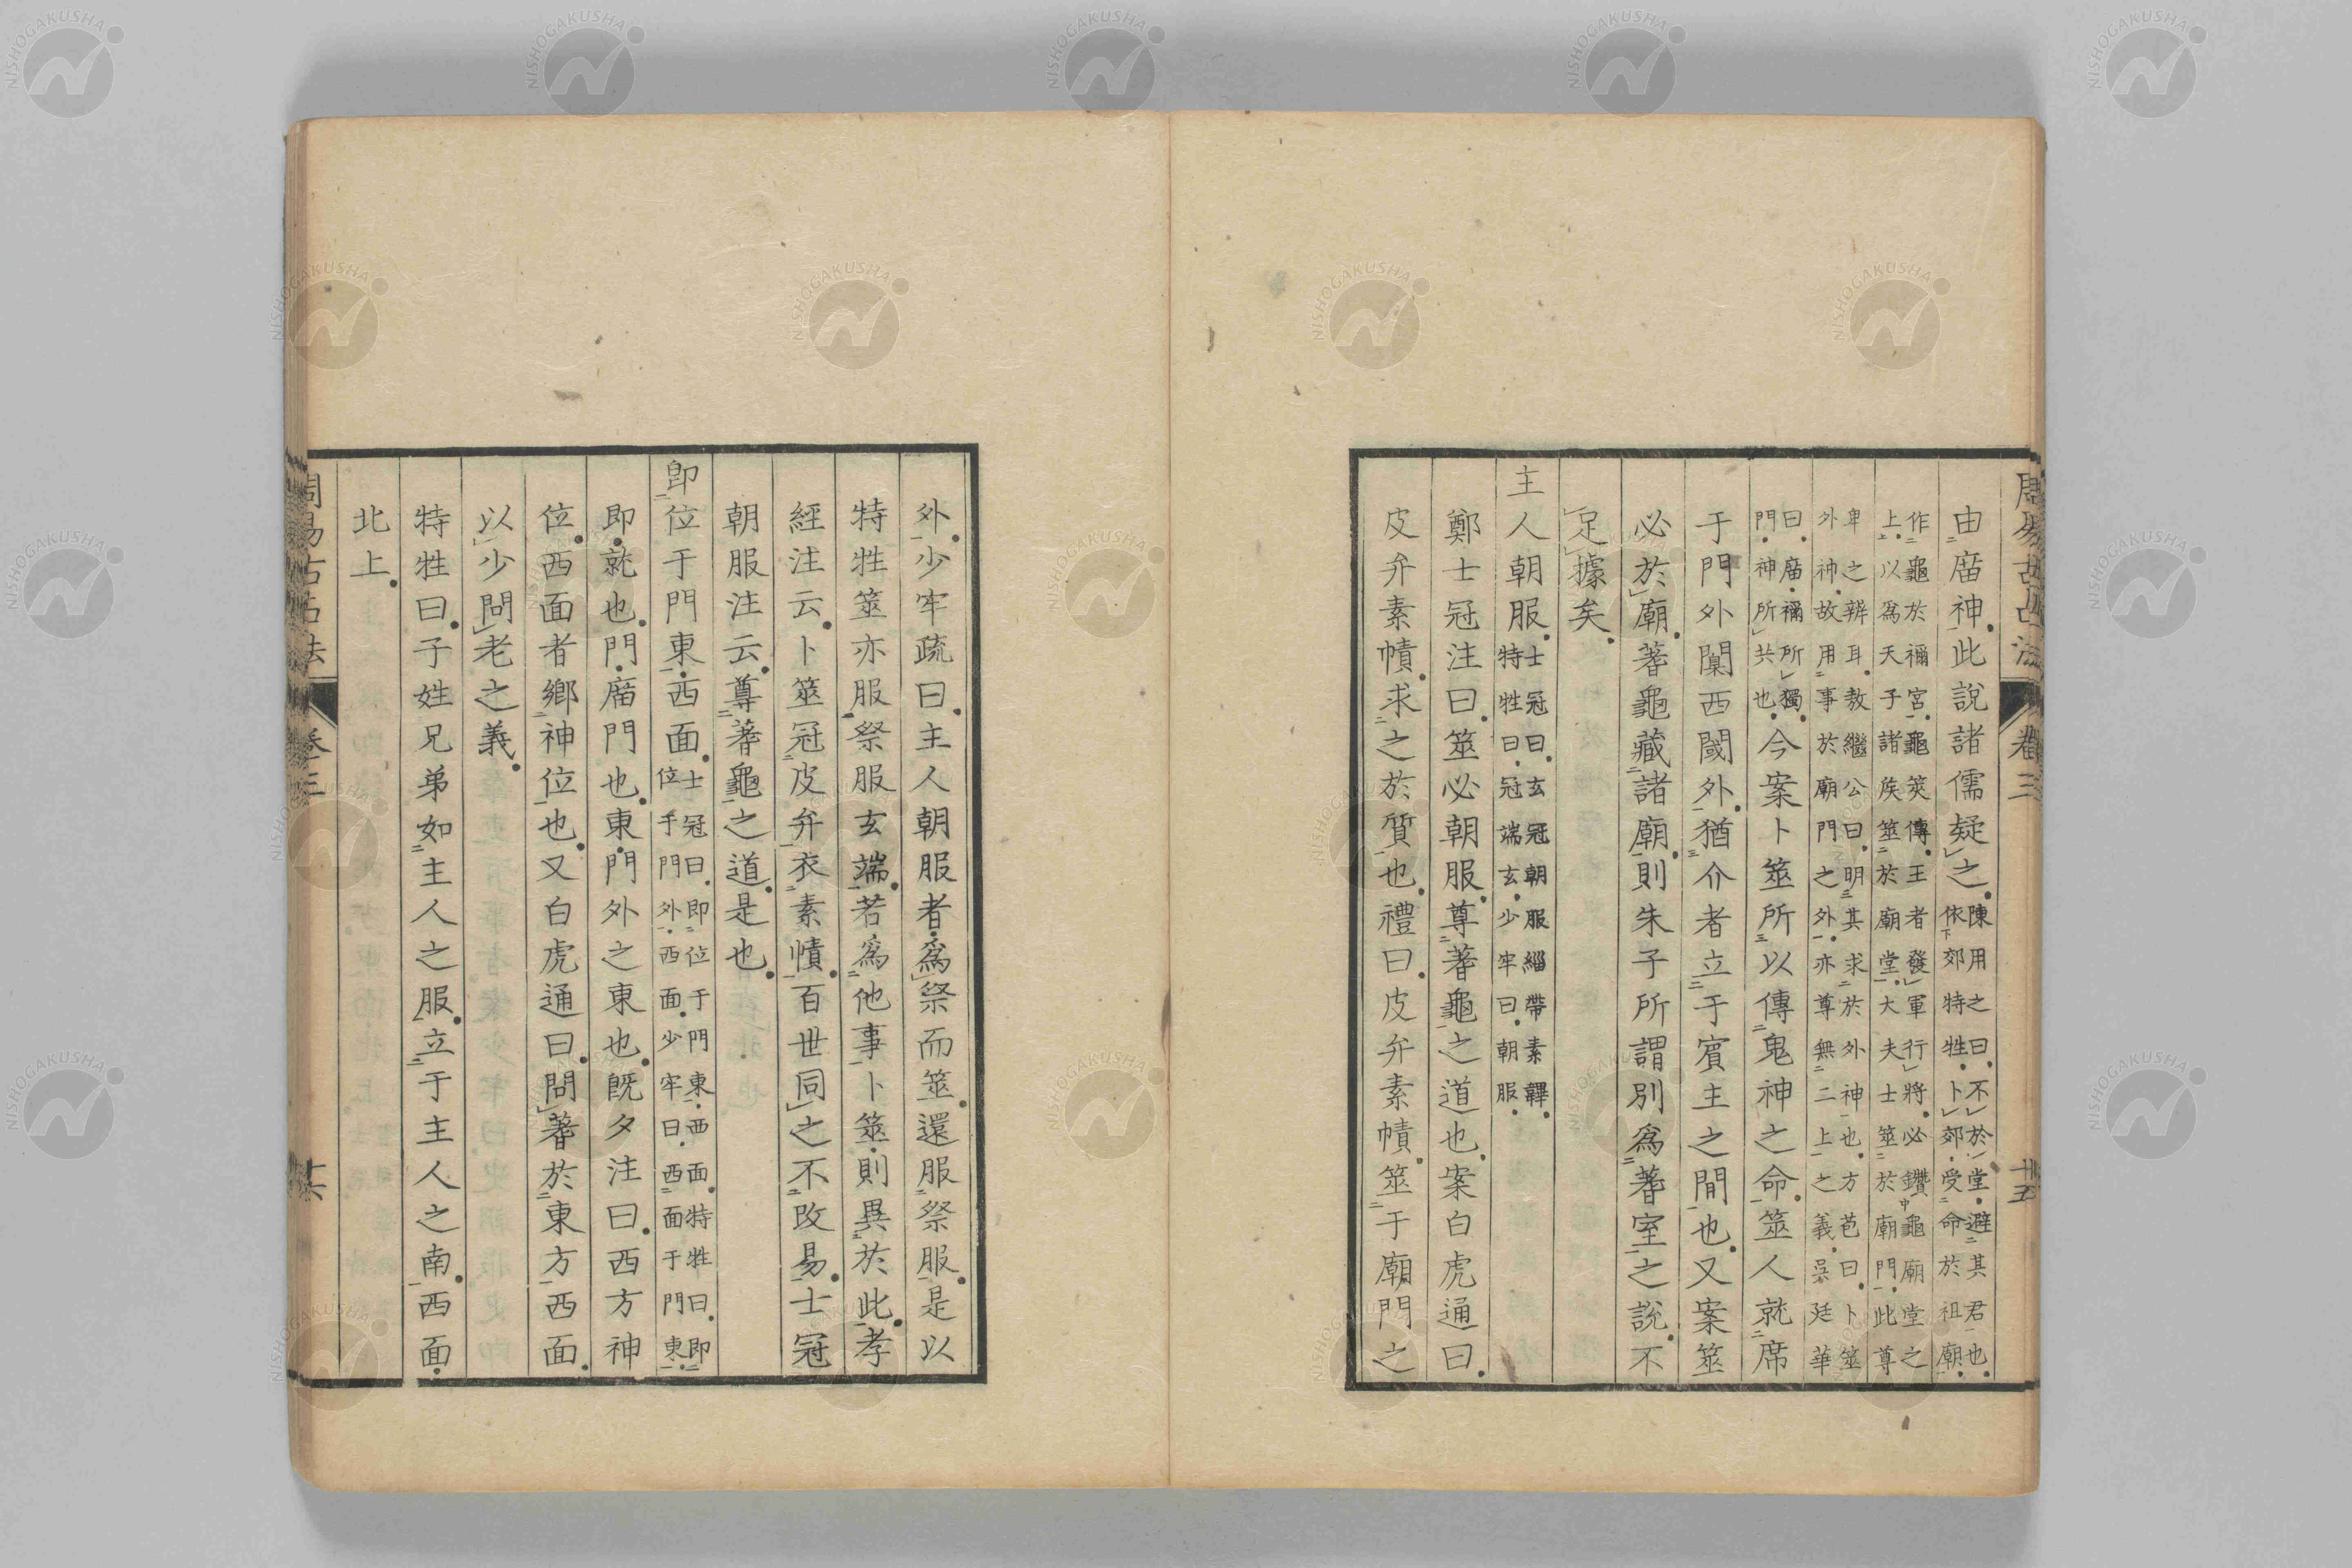 周易古占法 卷三 十五
由庿神此說諸儒疑之陳用之曰不於堂避其君也
依郊特牲卜郊受命於祖廟
作龜於禰宮龜筴傳王者發軍行將必鑽龜廟堂之
上以為天子諸矦筮於廟堂大夫士筮於廟門此尊
卑之辨耳敖繼公曰明其求於外神也方苞曰卜筮
外神故用事於廟門之外亦尊無二上之義吳廷華
曰庿禰所獨
門神所共也今案卜筮所以傳鬼神之命筮人就席
于門外闑西閾外猶介者立于賓主之間也又案筮
必於廟蓍龜藏諸廟則朱子所謂別為蓍室之說不
足據矣
主人朝服士冠曰玄冠朝服緇帶素韠
特牲曰冠端玄少牢曰朝服
鄭士冠注曰筮必朝服尊蓍龜之道也案白虎通曰
皮弁素幘求之於質也禮曰皮弁素幘筮于廟門之
外少牢疏曰主人朝服者為祭而筮還服祭服是以
特牲筮亦服祭服玄端若為他事卜筮則異於此孝
經注云卜筮冠皮弁衣素幘百世同之不改易士冠
朝服注云尊蓍龜之道是也
即位于門東西面士冠曰即位于門東西面特牲曰即
位于門外西面少牢曰西面于門東
即就也門庿門也東門外之東也旣夕注曰西方神
位西面者鄉神位也又白虎通曰問蓍於東方西面
以少問老之義
特牲曰子姓兄弟如主人之服立于主人之南西面
北上
周易古占法 卷三 十六